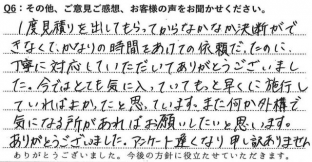 Q6：その他、ご意見ご感想、お客様の声をお聞かせください。
1度見積りを出してもらってからなかなか決断がで
きなくて、かなりの時間をあけての依頼だったのに、
丁寧に対応していただいてありがとうございまし
た。今ではとても気に入っていてもっと早くに施行し
ていればよかったと思っています。また何か外構で
気になる所があればお願いしたいと思います。
ありがとうございました。アンケート遅くなり申し訳ありません
ありがとうございました。今後の方針に役立たせていただきます。